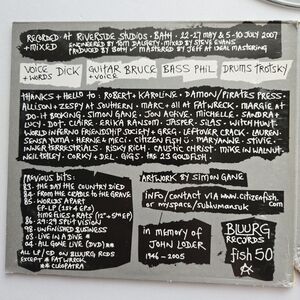 RECORDED AT RIVERSIDE STUDIOS · BATH · 22-27 MAY & 5-10 JULY 2007
+ MIXED
ENGINEERED BY TOM DALGETY · MIXED BY STEVE EVANS
PRODUCED BY BOTH ✓ MASTERED BY JEFF AT IDEAL MASTERING
VOICE DICK GUITAR BRUCE BASS PHIL DRUMS TROTSKY
+ WORDS + VOICE
THANKS + HELLO TO: ROBERT + KAROLINE · DAMON/PIRATES PRESS ·
ALLISON + ZESPY AT SOUTHERN · MARC + ALL AT FAT WRECK · MARGIE AT
DO-IT BOOKING · SIMON GANE · JON · MICHELLE · SANDRA ·
LUCY · DOT · CLAIRE · ERIKA RANSOM · JASPER · SILAS · WITCH HUNT ·
WORLD INFERNO FRIENDSHIP SOCIETY · GREG · LEFTOVER CRACK · LAUREN ·
SENSA YUMA · HERNE + MECI · CITIZEN FISH · MARYANNE · STIVIE ·
INNER TERRESTRIALS · RISKY RICH · CAUSTIC CHRIST · MIKE IN WALNUT ·
NEIL · CORKY + DEL · GIGS · THE 23 GOLDFISH ·
PREVIOUS BITS:
83 · THE DAY THE COUNTRY DIED
84 · FROM THE CRADLE TO THE GRAVE
85 · WORLDS APART
EP-LP (1ST 4 EPS)
TIME FLIES + RATS (12" + 5TH EP)
86 · 29:29 SPLIT VISION
98 · UNFINISHED BUSINESS
03 · LIVE IN A DIVE *
04 · ALL GONE LIVE (DVD) **
ALL LP/CD ON BLUURG RCDS
EXCEPT * FAT WRECK
** CLEOPATRA
ARTWORK BY SIMON GANE
INFO/CONTACT VIA WWW.CITIZENFISH.
OR MYSPACE/SUBHUMANSUK COM
in memory of
JOHN LODER
1946 - 2005
BLUURG
RECORDS
fish 50